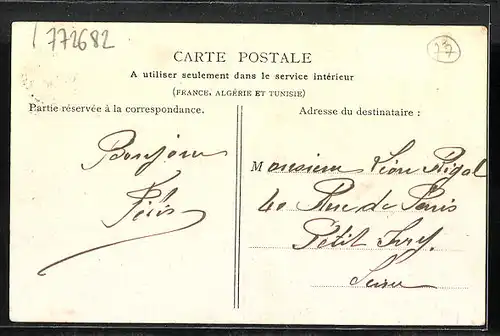 772682
CARTE POSTALE
A utiliser seulement dans le service intérieur
(FRANCE, ALGÉRIE ET TUNISIE)
Partie réservée à la correspondance.
Adresse du destinataire :
Bonjour
Félis
Monsieur Léon Rigal
40 Rue de Paris
Petit Ivry.
Seine